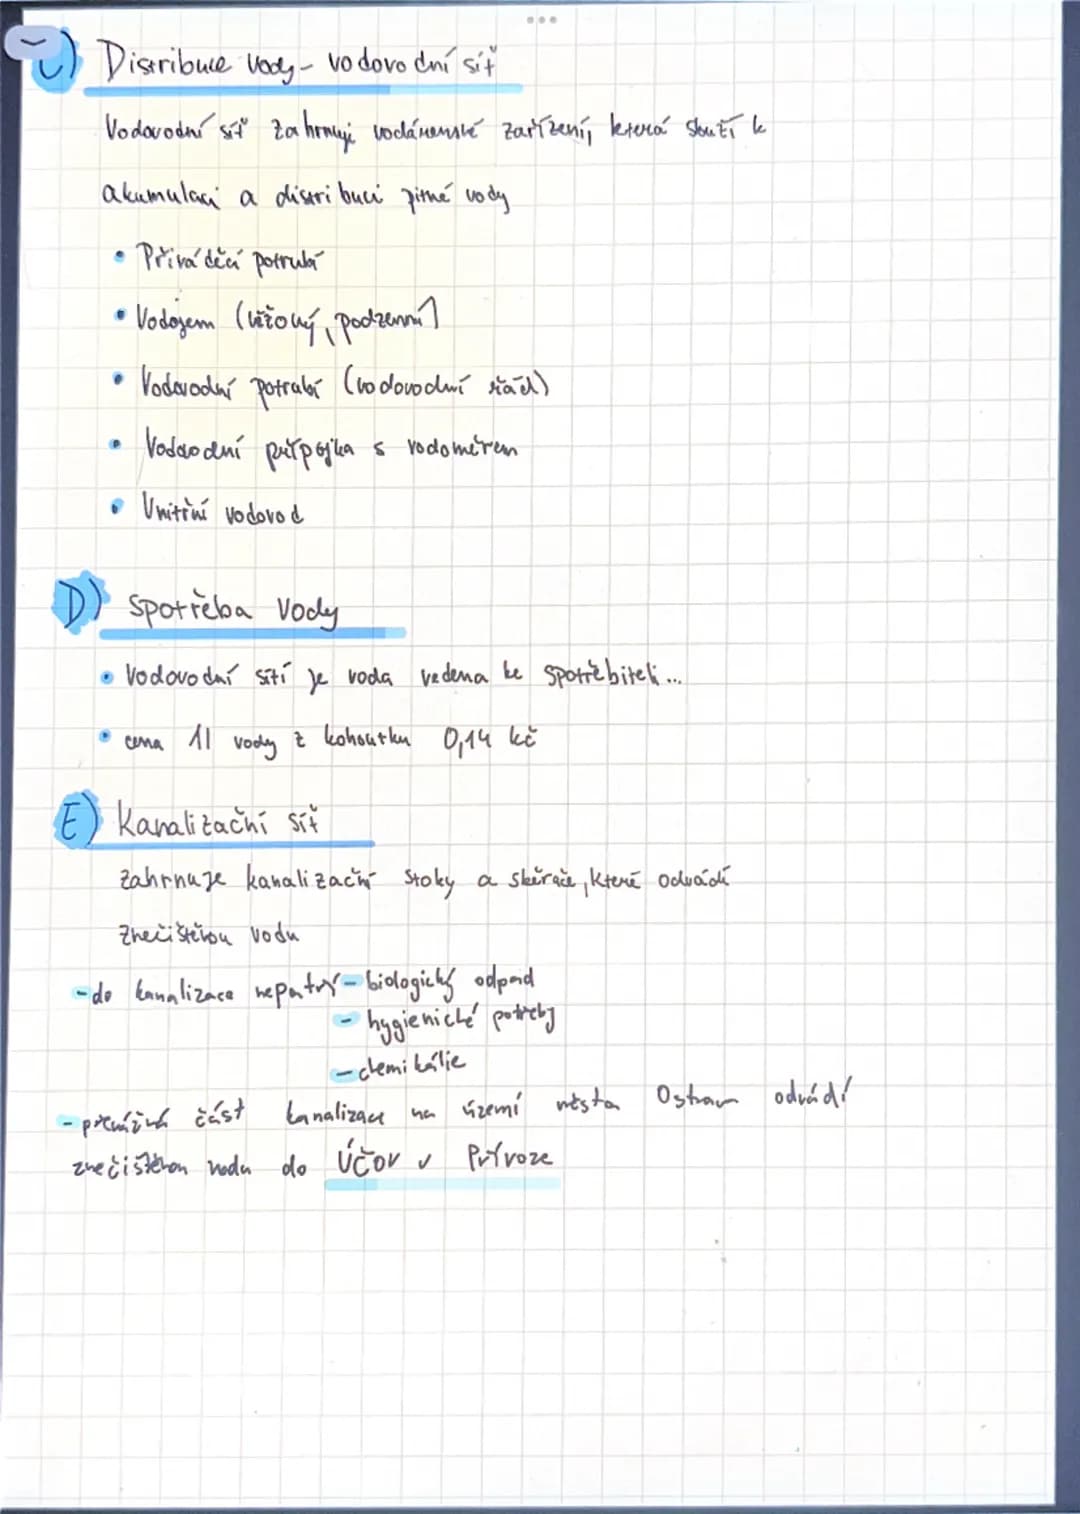 C) Distribuce vody - vodovodní síť
Vodovodní síť zahrnuji vodárenské zařízení, která slouží k
akumulaci a distribuci pitné vody
• Přiváděcí potrubí
• Vodojem (věžový, podzemní)
• Vodovodní potrubí (vodovodní řád)
• Vodovodní přípojka s vodoměrem
• Vnitřní vodovod
D) Spotřeba vody
• Vodovodní sítí je voda vedena ke spotřebiteli...
• cena 1l vody z kohoutku 0,14 kč
E) Kanalizační síť
zahrnuje kanalizační stoky a sběrače, které odvádí
znečištěnou vodu
- do kanalizace nepatří - biologický odpad
- hygienické potřeby
- chemikálie
- převážná část kanalizace na území města Ostrava odvádí
znečištěnou vodu do ÚČOV v Přívoze